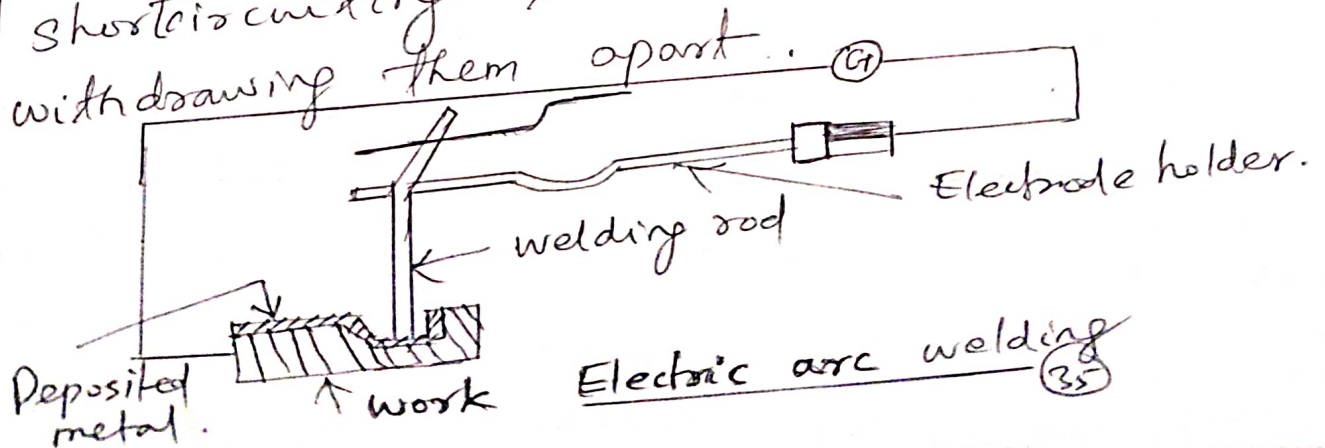 shortcircuiting
withdrawing them apart.
G
Electrode holder.
welding rod
Deposited
metal.
work
Electric arc welding
35